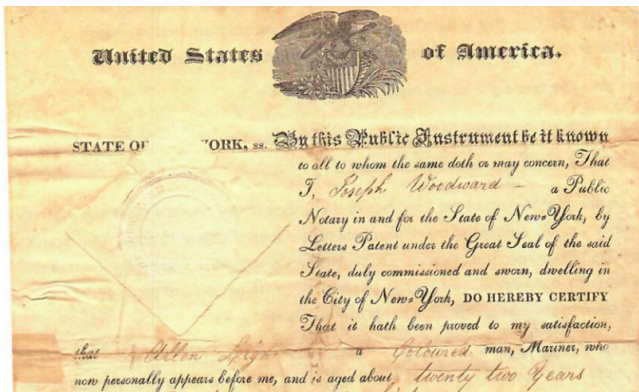 United States of America.
STATE OF YORK, ss. By this Public Instrument be it known
to all to whom the same doth or may concern, That
I, Joseph Woodward — a Public
Notary in and for the State of New-York, by
Letters Patent under the Great Seal of the said
State, duly commissioned and sworn, dwelling in
the City of New-York, DO HEREBY CERTIFY
That it hath been proved to my satisfaction,
that Allen a Coloured man, Mariner, who
now personally appears before me, and is aged about twenty two Years